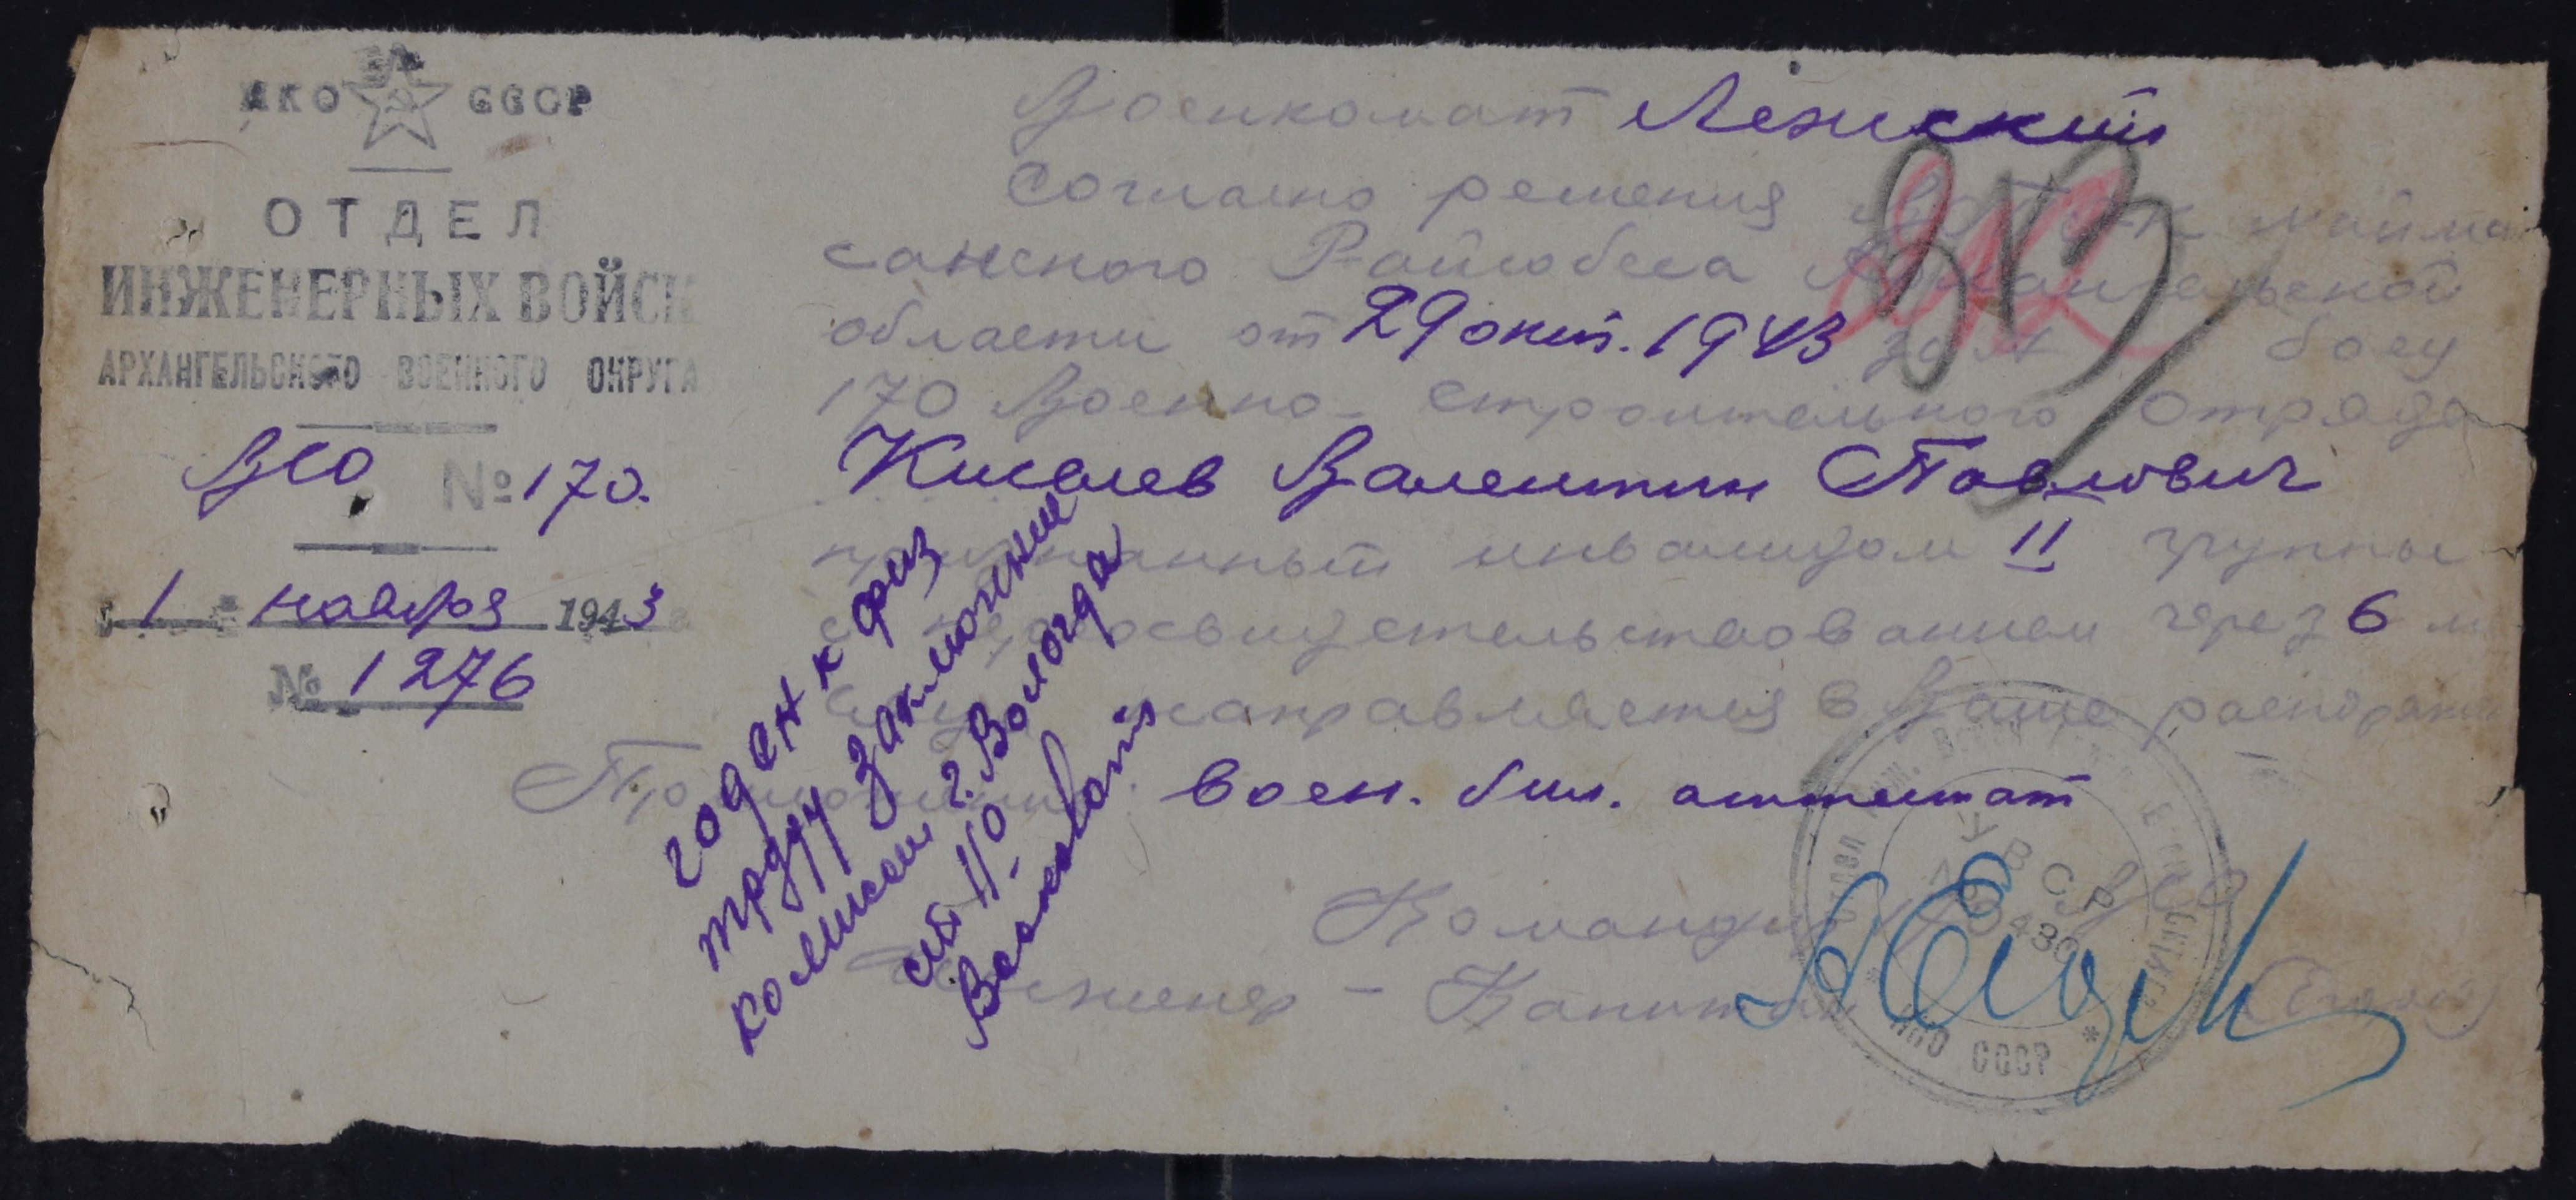 НКО СССР
ОТДЕЛ
ИНЖЕНЕРНЫХ ВОЙСК
АРХАНГЕЛЬСКОГО ВОЕННОГО ОКРУГА
ВСО № 170.
1 ноября 1943
№ 1276
Военкомат Лежский
Согласно решения
санского Райсобеса Архангельской
области от 29 окт. 1943 боец
170 Военно-строительного отряда
Киселев Валентин Павлович
признанный инвалидом II группы
переосвидетельствованием через 6 м
направляется в Ваше распоряже
Приложение: воен. бил. аттестат
Командир ВСО
Инженер-Капитан
годен к физ
труду заключении
комисси г. Вологда
ОТДЕЛ ИНЖ. ВОЙСК
УВСР
№ 430
НКО СССР